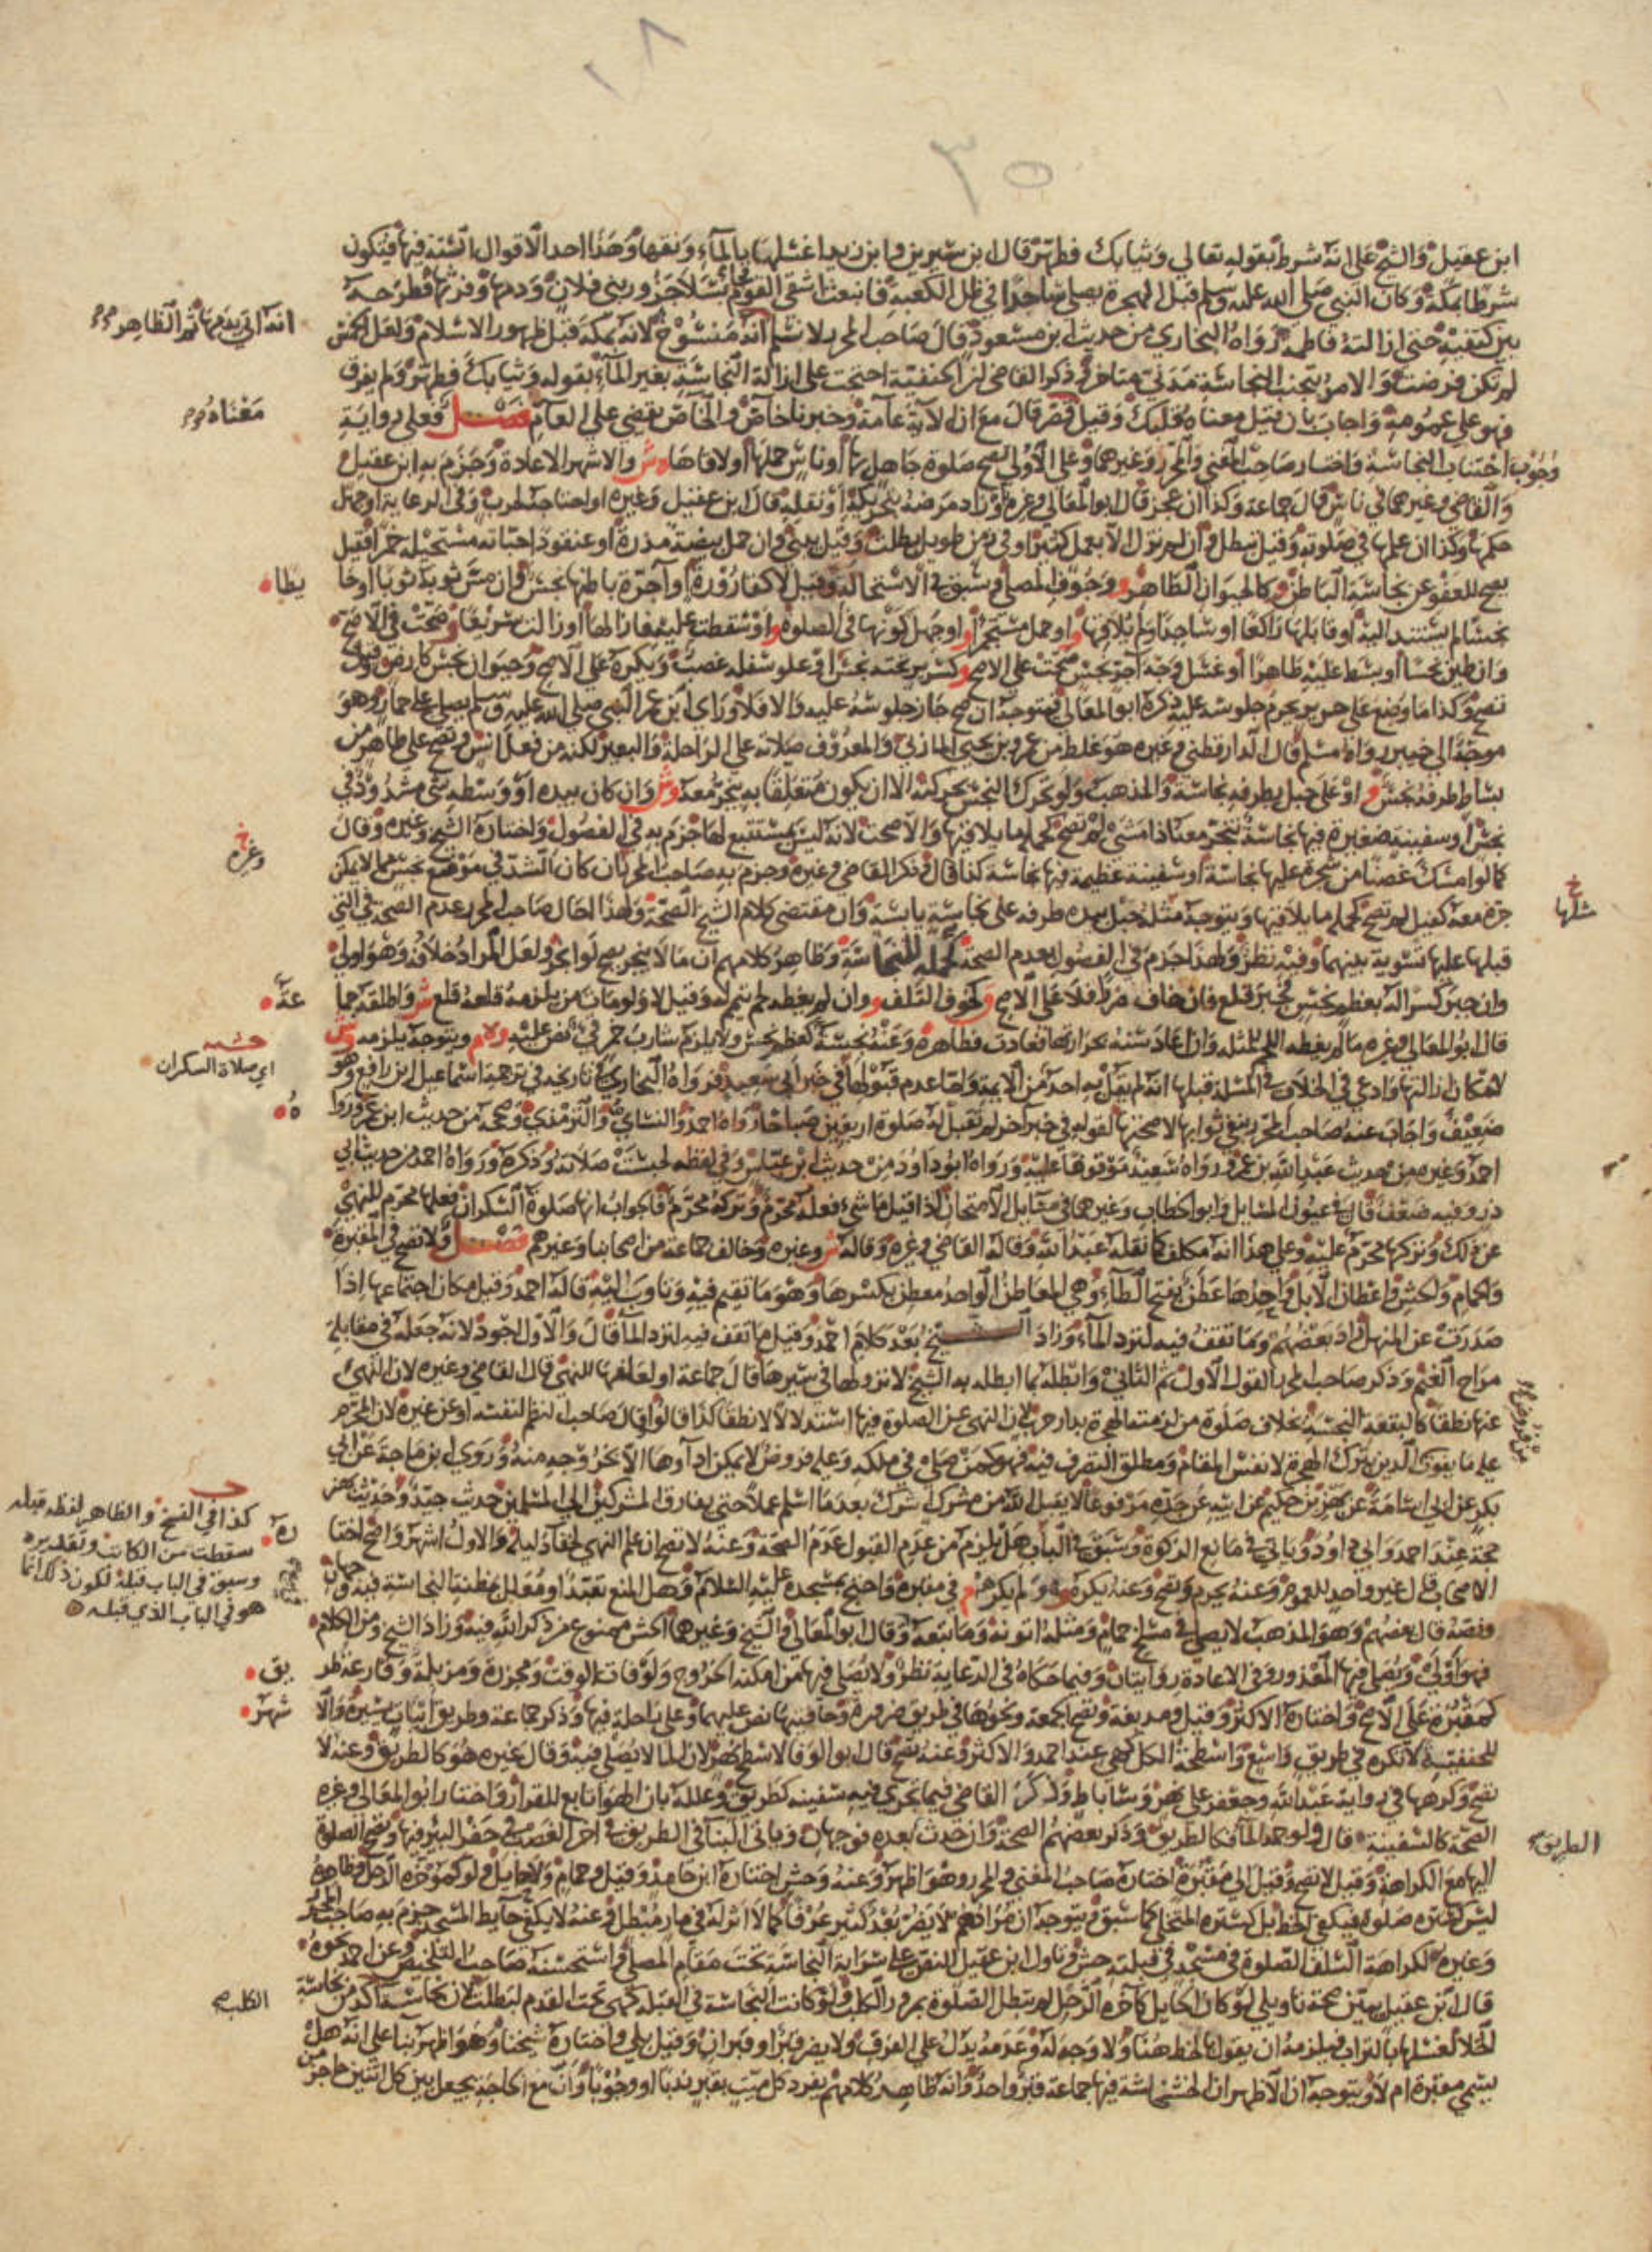 ٣٥
ابن عقيل والشيخ على انه شرط بقوله تعالى وثيابك فطهر قال ابن سيرين وابن زيد اغسلها بالمآء ونقها وهذا احد الاقوال الستة فيها فيكون
شرطا بمكة وكان النبي صلى الله عليه وسلم قبل الهجرة يصلي ساجدا في ظل الكعبة فانبعث اشقى القوم بسلا جزور بني فلان ودمها وفرثها فطرحه
بين كتفيه حتى ازالته فاطمة رواه البخاري من حديث ابن مسعود قال صاحب المحرر لا نسلم انه منسوخ لانه بمكة قبل ظهور الاسلام ولعل الخمس
لم تكن فرضت والامر بتجنب النجاسة مدني متاخر وذكر القاضي ان الحنفية احتجت على ازالة النجاسة بغير المآء بقوله وثيابك فطهر ولم يفرق
فهو على عمومه واجاب بان قيل معناه قلبك وقيل قصر قال مع ان الآية عامة وخبرنا خاص والخاص يقضي على العام فصل فعلى رواية
وجوب اجتناب النجاسة واختار صاحب المغني والمحرر وغيرهما وعلى الاولى تصح صلوة جاهل بها او ناس حملها او لاقاها ه ش والاشهر الاعادة وجزم به ابن عقيل
والقاضي وغيرهما في ناس قال جماعة وكذا ان عجز قال ابو المعالي وغيره وزاد مرضه بتحريكه او نقله قال ابن عقيل وغيره او احتاجه لحرب وفي الرعاية او جهل
حكمها وكذا ان علمها في صلوته وقيل تبطل وان لم تزل الا بعمل كثير او في زمن طويل بطلت وقيل يبني وان حمل بيضة مذرة او عنقود احباته مستحيلة خمرا فقيل
يصح للعفو عن نجاسة الباطن وكالحيوان الطاهر وجوف المصلي وسبق في الاستحالة وقيل لا كقارورة او آجرة باطنها نجس وان مس ثوبه ثوبا او حا
نجسا لم يستند اليه او قابلها راكعا او ساجدا ولم يلاقها او حمل مستجمرا او جهل كونها في الصلوة او سقطت عليه فازالها او زالت سريعا صحت في الاصح
وان طين نجسا او بسط عليه طاهرا او غسل وجه آجر نجس صحت على الاصح وكسرير تحته نجس او علو سفله غصب ويكره على الاصح وحيوان نجس كارض وقيل
تصح وكذا ما وضع على حرير يحرم جلوسه عليه ذكره ابو المعالي فيتوجه ان صح جاز جلوسه عليه والا فلا وراى ابن عمر النبي صلى الله عليه وسلم يصلي على حمار وهو
موجه الى خيبر رواه مسلم قال الدارقطني وغيره هو غلط من عمرو بن يحيى المازني والمعروف صلاته على الراحلة والبعير لكنه من فعل انس وتصح على طاهر من
بساط طرفه نجس او على حبل بطرفه نجاسة والمذهب ولو تحرك النجس بحركته الا ان يكون متعلقا به ينجر معه وش وان كان بيده او وسطه شي مشدود في
نجس او سفينة صغيرة فيها نجاسة تنجر معه اذا مشى لم تصح كحمله ما يلاقيها والا صحت لانه ليس بمستتبع لها جزم به في الفصول واختاره الشيخ وغيره وقال
كما لو امسك غصنا من شجرة عليها نجاسة او سفينة عظيمة فيها نجاسة كذا قال وذكر القاضي وغيره وجزم به صاحب المحرر ان كان الشد في موضع نجس مما لا يمكن
جره معه كفيل لم تصح كحمله ما يلاقيها ويتوجه مثله حبل بيده طرفه على نجاسة يابسة وان مقتضى كلام الشيخ الصحة ولهذا احال صاحب المحرر عدم الصحة في التي
قبلها عليها تسوية بينهما وفيه نظر ولهذا جزم في الفصول بعدم الصحة لحمله للنجاسة وظاهر كلامهم ان ما لا ينجر يصح لو انجر ولعل المراد خلافه وهو اولى
وان جبر كسرا له بعظم نجس فجبر قلع فان خاف ضررا فلا على الاصح وكخوف التلف وان لم يغطه لحم تيمم له وقيل لا ولو مات من يلزمه قلعه قلع ش واطلقه جما
قال ابو المعالي وغيره ما لم يغطه اللحم للمثلة وان اعاد سنه بحرارتها فعادت فطاهرة وعنه نجسة كعظم نجس ولا يلزم شارب خمر قيء نص عليه ولا م ويتوجه يلزمه وش
لامكان ازالتها وادعى في الخلاف في المسلة قبلها انه لم يقل به احد من الايمة واما عدم قبولها في خبر ابي سعيد فرواه البخاري في تاريخه في ترجمة اسماعيل ابن رافع وهو
ضعيف واجاب عنه صاحب المحرر بنفي ثوابها لا صحتها لقوله في خبر آخر لم تقبل له صلوة اربعين صباحا رواه احمد والنسائي والترمذي وصححه من حديث ابن عمر وروا
احمد وغيره من حديث عبد الله بن عمرو رواه سعيد موقوفا عليه ورواه ابو داود من حديث ابن عباس وفي لفظه بخست صلاته وذكره ورواه احمد من حديث ابي
ذر وفيه ضعف قال في عيون المسايل وابو الخطاب وغيرهما في مقابل الامتحان اذا قيل ما شيء فعله محرم وتركه محرم فالجواب انها صلوة السكران فعلها محرم للنهي
عن ذلك وتركها محرم عليه وعلى هذا انه مكلف كما نقله عبد الله وقاله القاضي وغيره وقاله ش وغيره وخالف جماعة من اصحابنا وغيرهم فصل ولا تصح في المقبرة
والحمام والحش واعطان الابل واحدها عطن بفتح الطآء وهي المعاطن الواحد معطن بكسرها وهو ما تقيم فيه وتاوي اليه قاله احمد وقيل مكان اجتماعها اذا
صدرت عن المنهل زاد بعضهم وما تقف فيه لترد المآء وزاد الشيخ بعد كلام احمد وقيل ما تقف فيه لترد المآ قال والاول اجود لانه جعله في مقابلة
مراح الغنم وذكر صاحب المحرر القول الاول ثم الثاني وابطله بما ابطله به الشيخ لا نزولها في سيرها قال جماعة او لعلفها للنهي قال القاضي وغيره لان النهي
عنها نطقا كالبقعة النجسة بخلاف صلوة من لزمته الهجرة بدار حرب لان النهي عن الصلوة فيها استدلالا لا نطقا كذا قالوا وقال صاحب النظم لنفسه او عن غيره لان المحرم
على ما يقوى الدين بترك الهجرة لا نفس المقام ومطلق التصرف فيه فهو كمن صلى في ملكه وعليه فروض لا يمكن ادآوها الا بخروجه منه وروى ابن ماجة عن ابي
بكر عن ابي اسامة عن بهز بن حكيم عن ابيه عن جده مرفوعا لا يقبل الله من مشرك اشرك بعد ما اسلم عملا حتى يفارق المشركين الى المسلمين حديث جيد وحديث بهز
حجة عند احمد وابي داود وياتي في مانع الزكوة وسبق في الباب هل يلزم من عدم القبول عدم الصحة وعنه لا تصح ان علم النهي لخفآ دليله والاول اشهر واصح اختا
الاصحاب قال غير واحد للعموم وعنه يحرم وتصح وعنه يكره وه وم ولم يكره م في مقبرة واحتج بمسجده عليه السلام وهل المنع تعبد او معلل بمظنة النجاسة فيه وجهان
ونصه قال بعضهم وهو المذهب لا يصلي في مسلخ حمام ومثله اتونه وما يتبعه وقال ابو المعالي والشيخ وغيرهما الحش ممنوع من ذكر الله فيه وزاد الشيخ ومن الكلام
فهو اولى ويصلي فيها المعذور وفي الاعادة روايتان وفيما حكاه في الرعاية نظر ولا يصلي فيها من امكنه الخروج ولو فات الوقت ومجزرة ومزبلة وقارعة طر
كمقبرة على الاصح واختاره الاكثر وقيل ومدبغة وتصح الجمعة ونحوها في طريق ضرورة وحافتيها نص عليهما وعلى راحلة فيها وذكر جماعة وطريق ابيات يسيرة والا
للحنفية لا تكره في طريق واسع واسطحة الكل كهي عند احمد والاكثر وعنه تصح قال ابو الوفا لا سطح نهر لان الما لا يصلى فيه وقال غيره هو كالطريق وعنه لا
تصح وكرهها في رواية عبد الله وجعفر على نهر وساباط وذكر القاضي فيما تجري فيه سفينة كطريق وعلله بان الهوا تابع للقرار واختار ابو المعالي وغيره
الصحة كالسفينة قال ولو جمد المآ فكالطريق وذكر بعضهم الصحة وان حدث بعده فوجهان وياتي البنا في الطريق في آخر الغصب في حفر البير فيها وتصح الصلوة
اليها مع الكراهة وقيل لا تصح وقيل الى مقبرة اختاره صاحب المغني والمحرر وهو اظهر وعنه وحش اختاره ابن حامد وقيل وحمام ولا حايل ولو كموخرة الرحل وظاهره
ليس كسترة صلوة فيكفي الخط بل كسترة المتخلي كما سبق ويتوجه ان مرادهم لا يضر بعد كثير عرفا كما لا اثر له في مار مبطل وعنه لا يكفي حايط المسجد جزم به صاحب المحرر
وغيره لكراهة السلف الصلوة في مسجد في قبلته حش وتاول ابن عقيل النص على سراية النجاسة تحت مقام المصلي واستحسنه صاحب التلخيص وعن احمد نحوه
قال ابن عقيل يبين صحة تاويلي لو كان الحايل كآخرة الرحل لم تبطل الصلوة بمرور الكلب ولو كانت النجاسة في القبلة كهي تحت القدم لبطلت لان نجاسة آكد من نجاسة
الخلا لغسلها بالتراب فيلزمه ان يقول بالخط هنا ولا وجه له وعدمه يدل على الفرق ولا يضر قبر او قبران وقيل بلى واختاره شيخنا وهو اظهر بنا على انه هل
يسمى مقبرة ام لا ويتوجه ان الاظهر ان الخشخاشة فيها جماعة قبر واحد وانه ظاهر كلامهم يفرد كل ميت بقبر ندبا او وجوبا وان مع الحاجة يجعل بين كل اثنين حاجز من
معناه
يطا
وغيره
خ
مثلها
عة
اي صلاة السكران
ه
ره
كذا في النسخ والظاهر لفظه قبله
سقطت من الكاتب وتقديره
وسبق في الباب قبله لكون ذلك انما
هو في الباب الذي قبله
يق
شهر
الطريق
الكلب